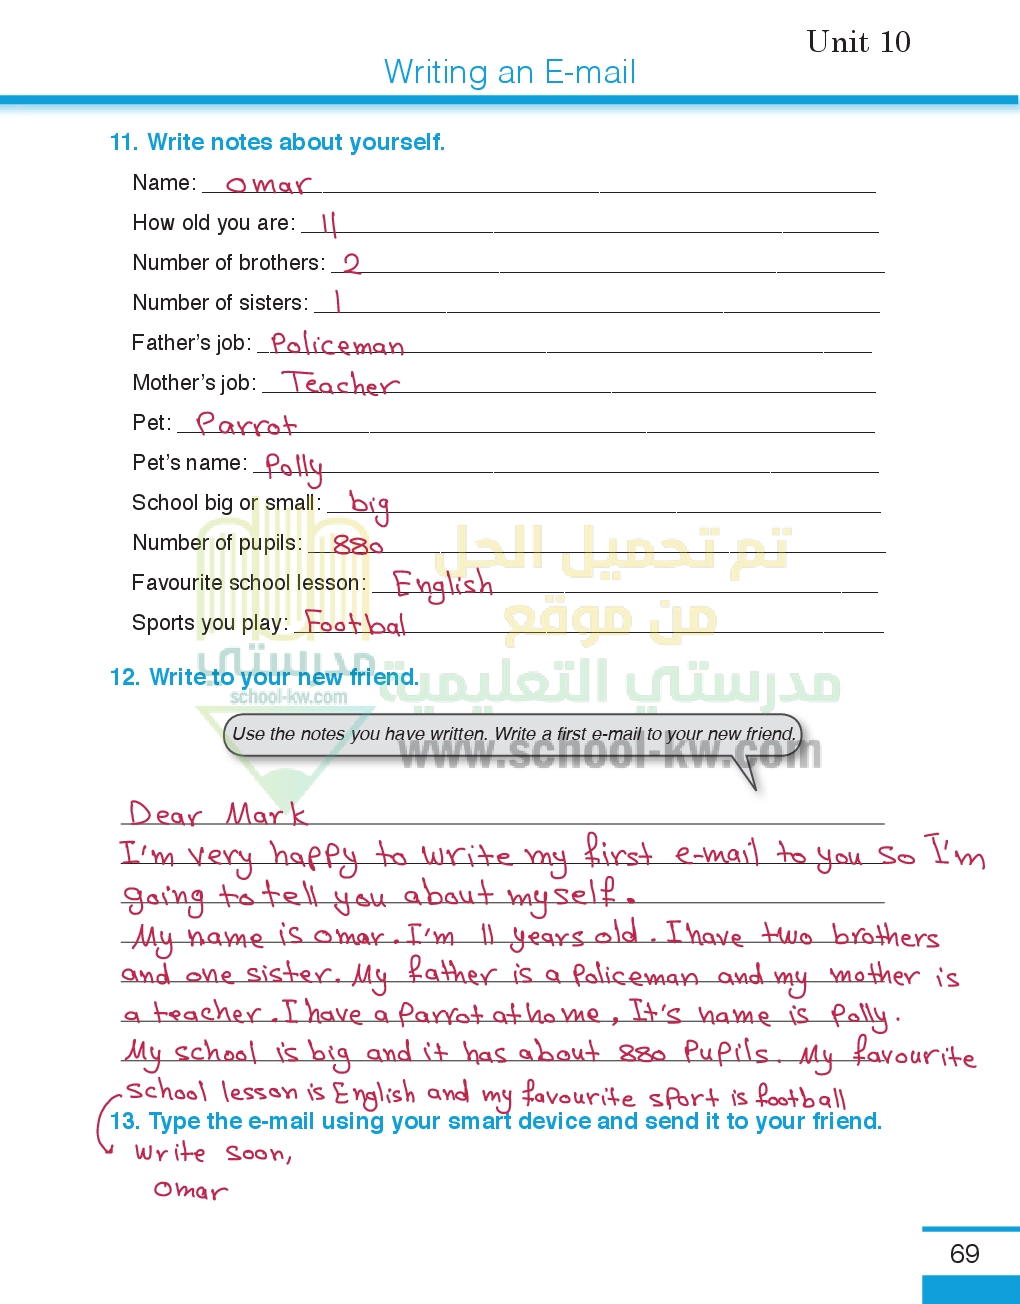 Unit 10
Writing an E-mail
11. Write notes about yourself.
Name: Omar
How old you are: 11
Number of brothers: 2
Number of sisters: 1
Father's job: Policeman
Mother's job: Teacher
Pet: Parrot
Pet's name: Polly
School big or small: big
Number of pupils: 880
Favourite school lesson: English
Sports you play: Footbal
تم تحميل الحل
من موقع
مدرستي التعليمية
مدرستي
school-kw.com
www.school-kw.com
12. Write to your new friend.
Use the notes you have written. Write a first e-mail to your new friend.
Dear Mark
I'm very happy to write my first e-mail to you so I'm
going to tell you about myself.
My name is Omar. I'm 11 years old. I have two brothers
and one sister. My father is a policeman and my mother is
a teacher. I have a parrot at home, It's name is Polly.
My school is big and it has about 880 Pupils. My favourite
school lesson is English and my favourite sport is football
13. Type the e-mail using your smart device and send it to your friend.
Write soon,
Omar
69